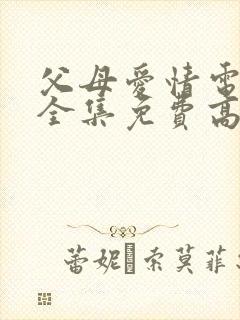 父母爱情电
全集免费高
蕾妮·索莫菲